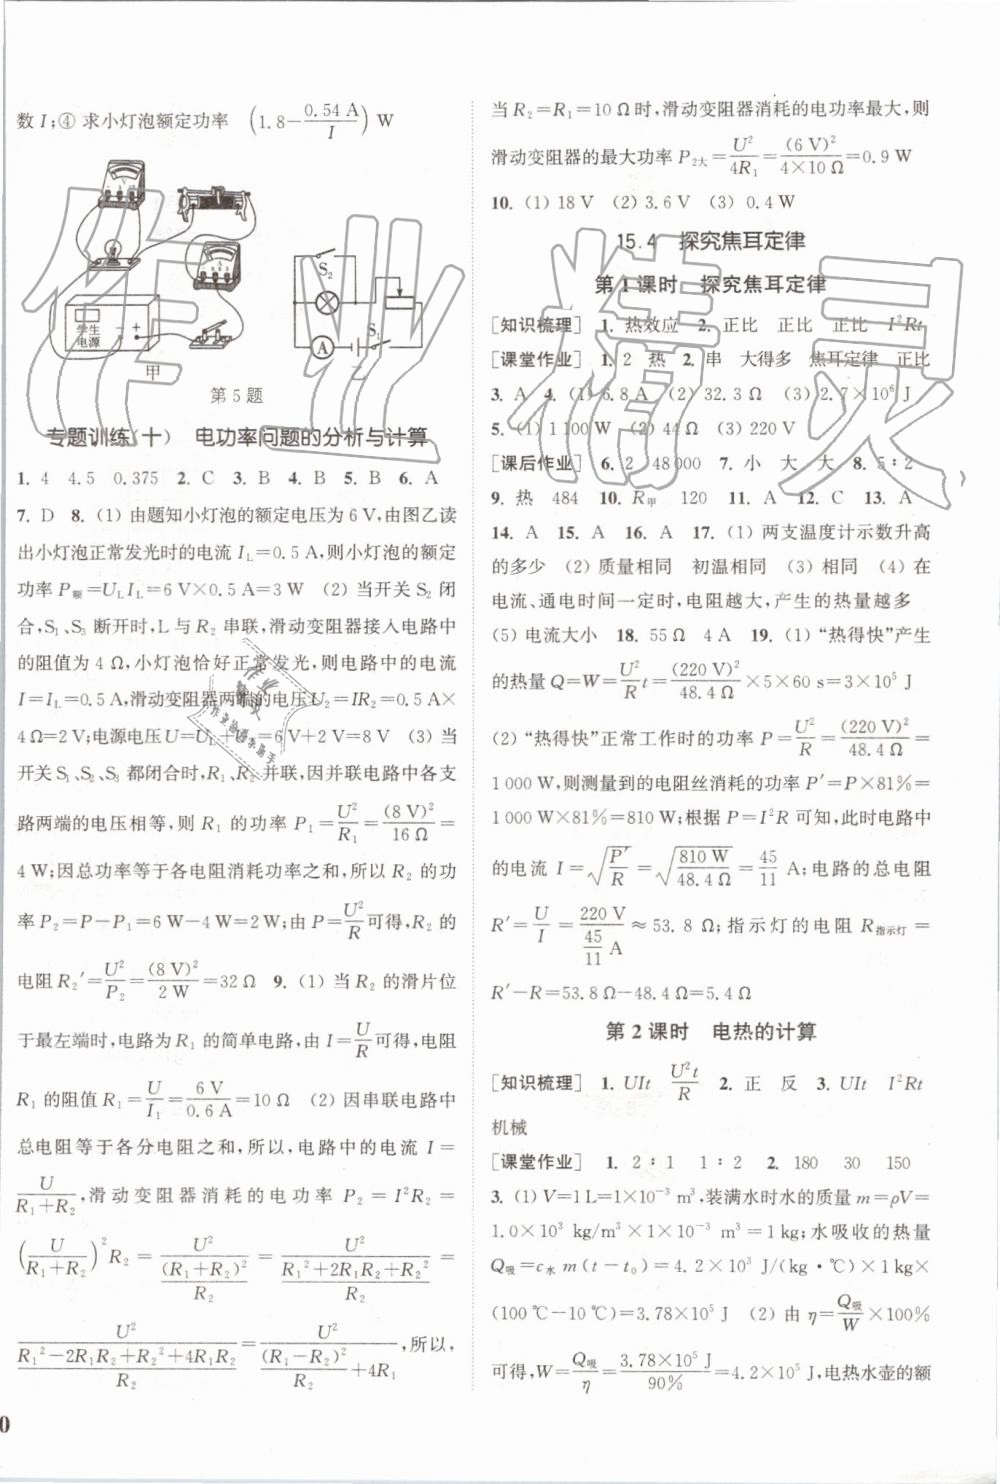 数 I;④ 求小灯泡额定功率 (1.8−0.54 A/I) W
学生
电源
甲
S₂
S₁
A
乙
第 5 题
专题训练(十) 电功率问题的分析与计算
1. 4 4.5 0.375 2. C 3. B 4. B 5. B 6. A
7. D 8. (1) 由题知小灯泡的额定电压为 6 V,由图乙读
出小灯泡正常发光时的电流 I_L=0.5 A,则小灯泡的额定
功率 P额=U_L I_L=6 V×0.5 A=3 W (2) 当开关 S₂ 闭
合,S₁、S₃ 断开时,L 与 R₂ 串联,滑动变阻器接入电路中
的阻值为 4 Ω,小灯泡恰好正常发光,则电路中的电流
I=I_L=0.5 A,滑动变阻器两端的电压 U₂=IR₂=0.5 A×
4 Ω=2 V;电源电压 U=U_L+U₂=6 V+2 V=8 V (3) 当
开关 S₁、S₂、S₃ 都闭合时,R₁、R₂ 并联,因并联电路中各支
路两端的电压相等,则 R₁ 的功率 P₁=U²/R₁=(8 V)²/16 Ω=
4 W;因总功率等于各电阻消耗功率之和,所以 R₂ 的功
率 P₂=P−P₁=6 W−4 W=2 W;由 P=U²/R 可得,R₂ 的
电阻 R₂′=U²/P₂=(8 V)²/2 W=32 Ω 9. (1) 当 R₂ 的滑片位
于最左端时,电路为 R₁ 的简单电路,由 I=U/R 可得,电阻
R₁ 的阻值 R₁=U/I₁=6 V/0.6 A=10 Ω (2) 因串联电路中
总电阻等于各分电阻之和,所以,电路中的电流 I=
U/(R₁+R₂),滑动变阻器消耗的电功率 P₂=I²R₂=
(U/(R₁+R₂))²R₂=U²/((R₁+R₂)²/R₂)=U²/((R₁²+2R₁R₂+R₂²)/R₂)=
U²/((R₁²−2R₁R₂+R₂²+4R₁R₂)/R₂)=U²/((R₁−R₂)²/R₂+4R₁),所以,
0
当 R₂=R₁=10 Ω 时,滑动变阻器消耗的电功率最大,则
滑动变阻器的最大功率 P₂大=U²/4R₁=(6 V)²/(4×10 Ω)=0.9 W
10. (1) 18 V (2) 3.6 V (3) 0.4 W
15.4 探究焦耳定律
第 1 课时 探究焦耳定律
[知识梳理] 1. 热效应 2. 正比 正比 正比 I²Rt
[课堂作业] 1. 2 热 2. 串 大得多 焦耳定律 正比
3. A 4. (1) 6.8 A (2) 32.3 Ω (3) 2.7×10⁶ J
5. (1) 1 100 W (2) 44 Ω (3) 220 V
[课后作业] 6. 2 48 000 7. 小 大 大 8. 5∶2
9. 热 484 10. R甲 120 11. A 12. C 13. A
14. A 15. A 16. A 17. (1) 两支温度计示数升高
的多少 (2) 质量相同 初温相同 (3) 相同 (4) 在
电流、通电时间一定时,电阻越大,产生的热量越多
(5) 电流大小 18. 55 Ω 4 A 19. (1) “热得快”产生
的热量 Q=W=U²/R t=(220 V)²/48.4 Ω×5×60 s=3×10⁵ J
(2) “热得快”正常工作时的功率 P=U²/R=(220 V)²/48.4 Ω=
1 000 W,则测量到的电阻丝消耗的功率 P′=P×81%=
1 000 W×81%=810 W;根据 P=I²R 可知,此时电路中
的电流 I=√(P′/R)=√(810 W/48.4 Ω)=45/11 A;电路的总电阻
R′=U/I=220 V/(45/11 A)≈53.8 Ω;指示灯的电阻 R指示灯=
R′−R=53.8 Ω−48.4 Ω=5.4 Ω
第 2 课时 电热的计算
[知识梳理] 1. UIt U²t/R 2. 正 反 3. UIt I²Rt
机械
[课堂作业] 1. 2∶1 1∶2 2. 180 30 150
3. (1) V=1 L=1×10⁻³ m³,装满水时水的质量 m=ρV=
1.0×10³ kg/m³×1×10⁻³ m³=1 kg;水吸收的热量
Q吸=c水 m(t−t₀)=4.2×10³ J/(kg·℃)×1 kg×
(100 ℃−10 ℃)=3.78×10⁵ J (2) 由 η=Q吸/W×100%
可得,W=Q吸/η=3.78×10⁵ J/90%=4.2×10⁵ J,电热水壶的额
作业精灵